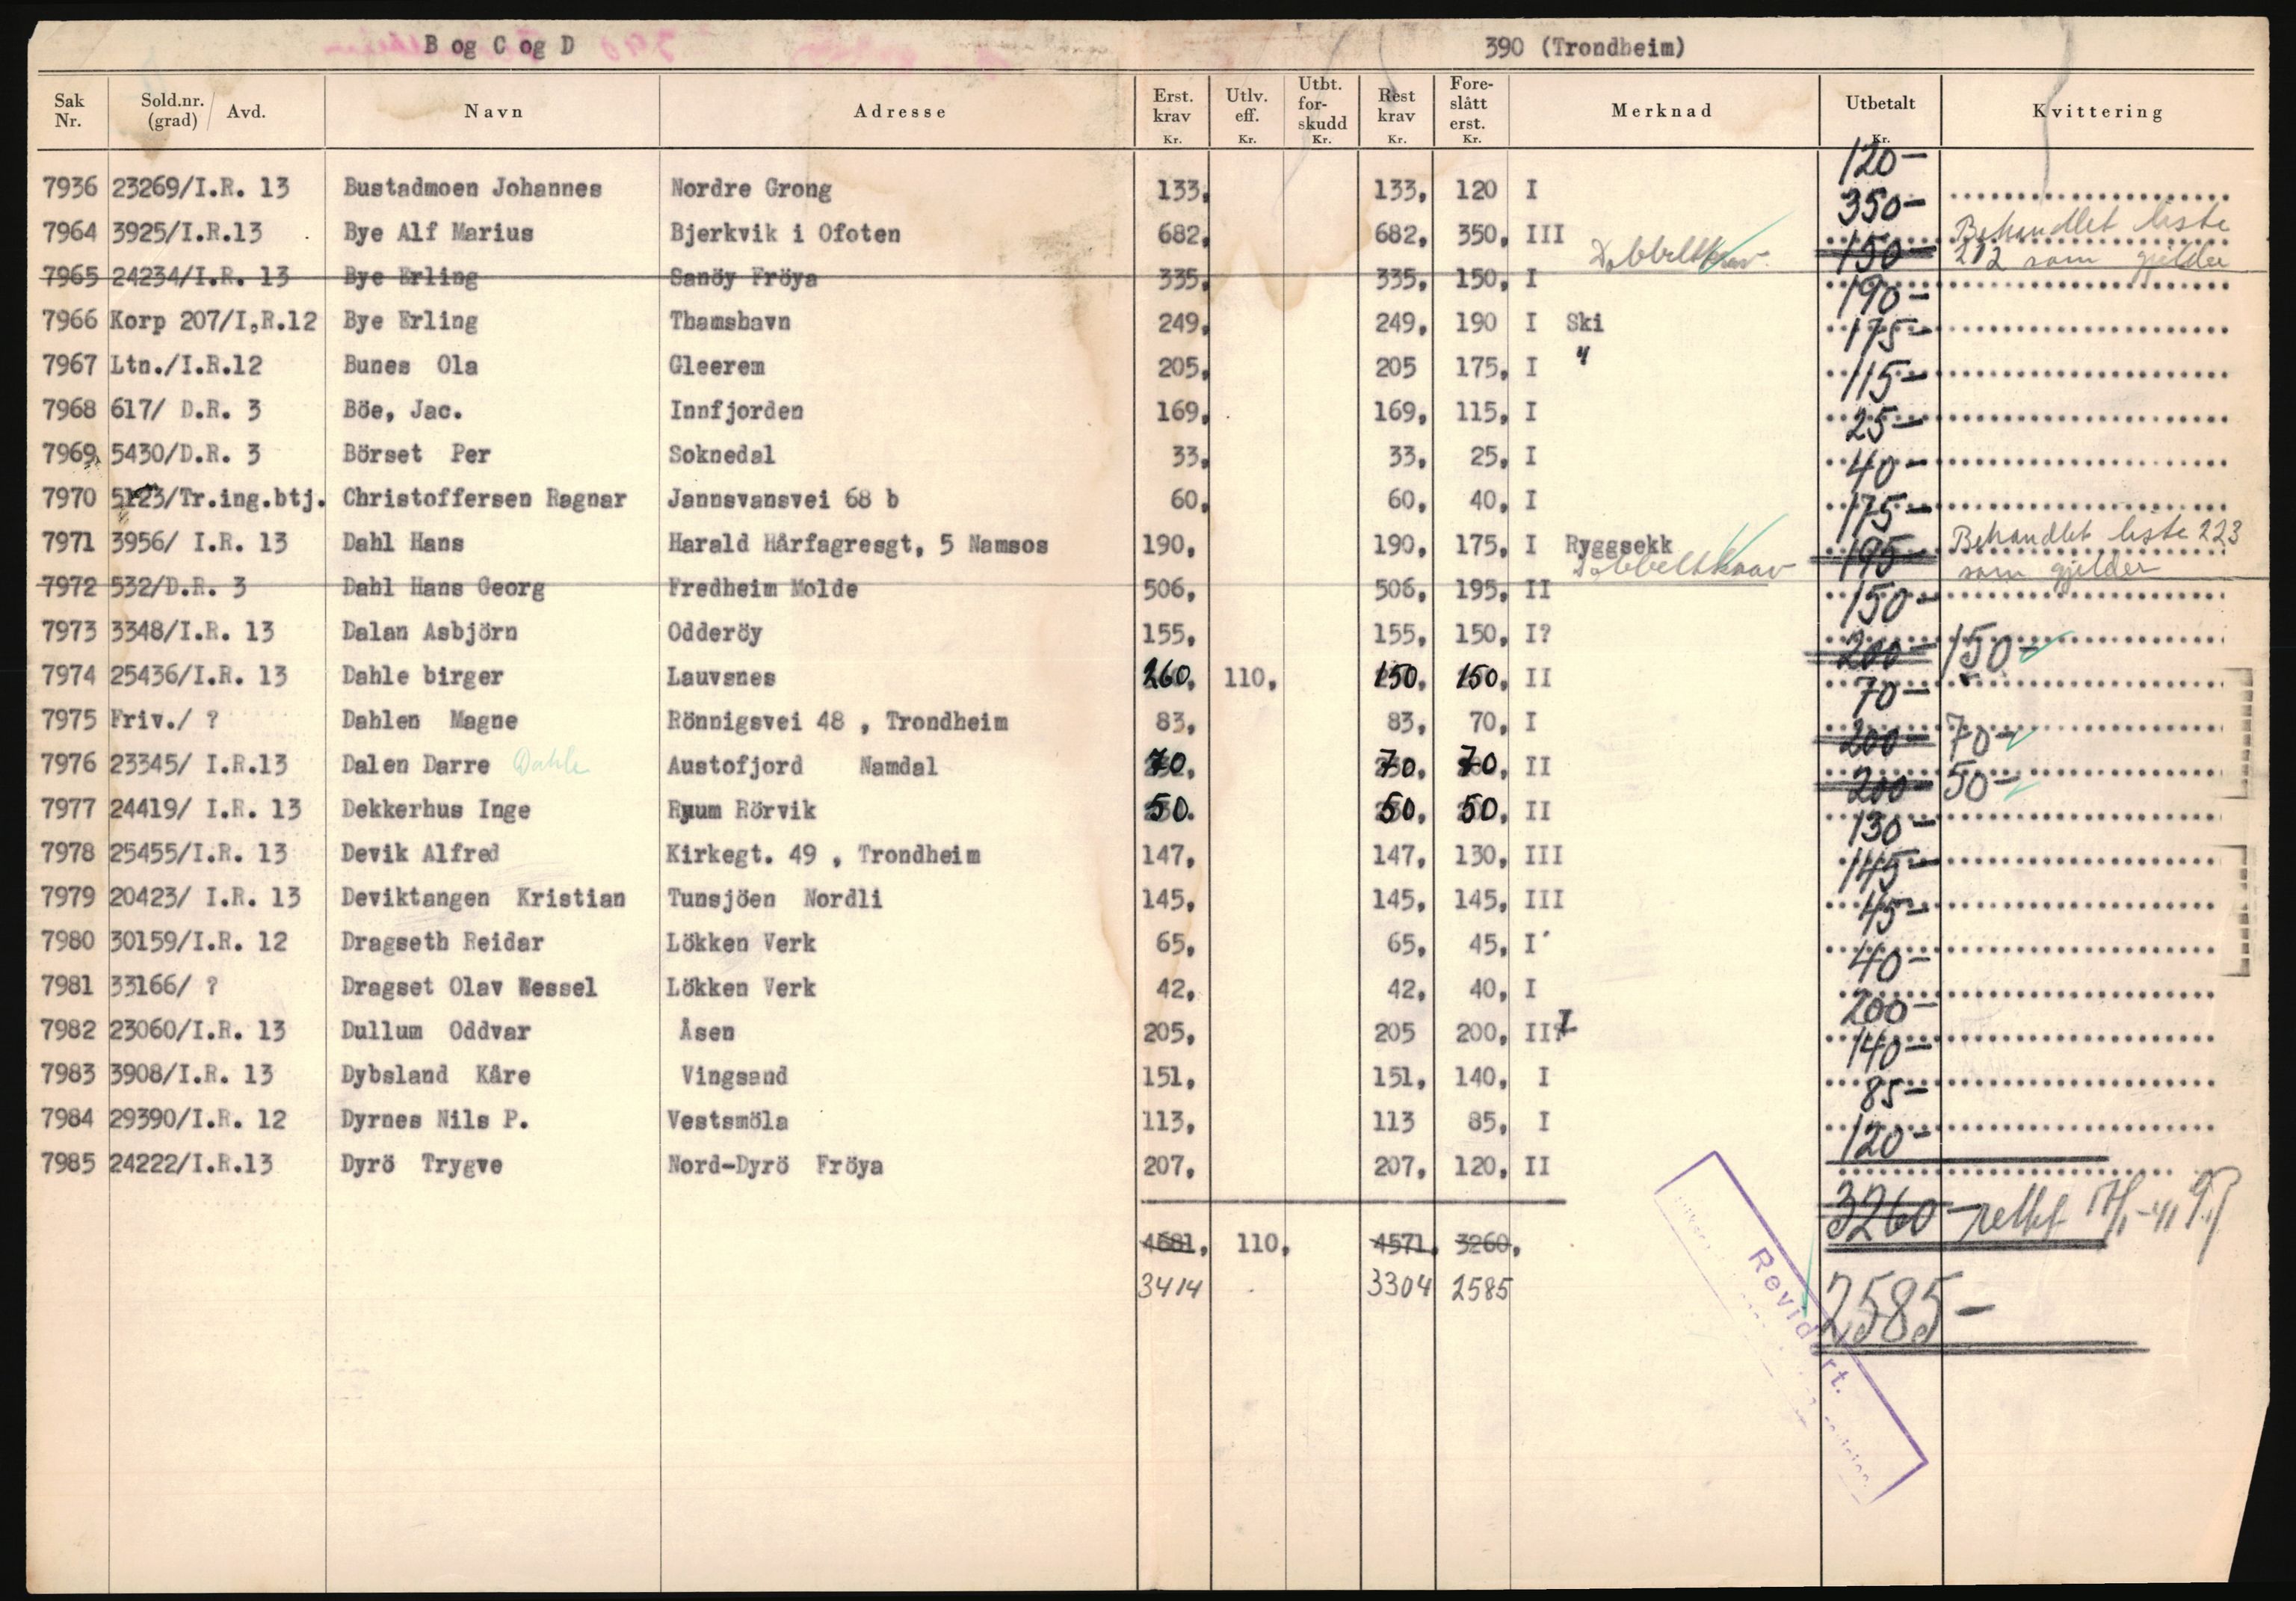 B og C og D 390 (Trondheim)
Sak Nr. Sold.nr. (grad) / Avd. Navn Adresse Erst. krav Kr. Utlv. eff. Kr. Utbt. for- skudd Kr. Rest krav Kr. Fore- slått erst. Kr. Merknad Utbetalt Kr. Kvittering
7936 23269/I.R. 13 Bustadmoen Johannes Nordre Grong 133, 133, 120 I 120-
7964 3925/I.R.13 Bye Alf Marius Bjerkvik i Ofoten 682, 682, 350, III 350-
7965 24234/I.R. 13 Bye Erling Sanöy Fröya 335, 335, 150, I Dobbeltkrav. 150- Behandlet liste 212 som gjelder
7966 Korp 207/I,R.12 Bye Erling Thamshavn 249, 249, 190 I Ski 190-
7967 Ltn./I.R.12 Bunes Ola Gleerem 205, 205 175, I " 175-
7968 617/ D.R. 3 Böe, Jac. Innfjorden 169, 169, 115, I 115-
7969, 5430/D.R. 3 Börset Per Soknedal 33, 33, 25, I 25-
7970 5123/Tr.ing.btj. Christoffersen Ragnar Jannsvansvei 68 b 60, 60, 40, I 40-
7971 3956/ I.R. 13 Dahl Hans Harald Hårfagresgt, 5 Namsos 190, 190, 175, I Ryggsekk 175-
7972 532/D.R. 3 Dahl Hans Georg Fredheim Molde 506, 506, 195, II Dobbeltkrav 195- Behandlet liste 223 som gjelder
7973 3348/I.R. 13 Dalan Asbjörn Odderöy 155, 155, 150, I? 150-
7974 25436/I.R. 13 Dahle birger Lauvsnes 260, 110, 150, 150, II 200- 150-
7975 Friv./ ? Dahlen Magne Rönnigsvei 48 , Trondheim 83, 83, 70, I 70-
7976 23345/ I.R.13 Dalen Darre Dahle Austofjord Namdal 70, 70, 70, II 200- 70-
7977 24419/ I.R. 13 Dekkerhus Inge Ryum Rörvik 50. 50, 50, II 200- 50-
7978 25455/I.R. 13 Devik Alfred Kirkegt. 49 , Trondheim 147, 147, 130, III 130-
7979 20423/ I.R. 13 Deviktangen Kristian Tunsjöen Nordli 145, 145, 145, III 145-
7980 30159/I.R. 12 Dragseth Reidar Lökken Verk 65, 65, 45, I´ 45-
7981 33166/ ? Dragset Olav Wessel Lökken Verk 42, 42, 40, I 40-
7982 23060/I.R. 13 Dullum Oddvar Åsen 205, 205 200, III 200-
7983 3908/I.R. 13 Dybsland Kåre Vingsand 151, 151, 140, I 140-
7984 29390/I.R. 12 Dyrnes Nils P. Vestsmöla 113, 113 85, I 85-
7985 24222/I.R.13 Dyrö Trygve Nord-Dyrö Fröya 207, 207, 120, II 120-
4681, 110, 4571, 3260, 3260- rettet
3414 3304 2585 2585-
Revidert.